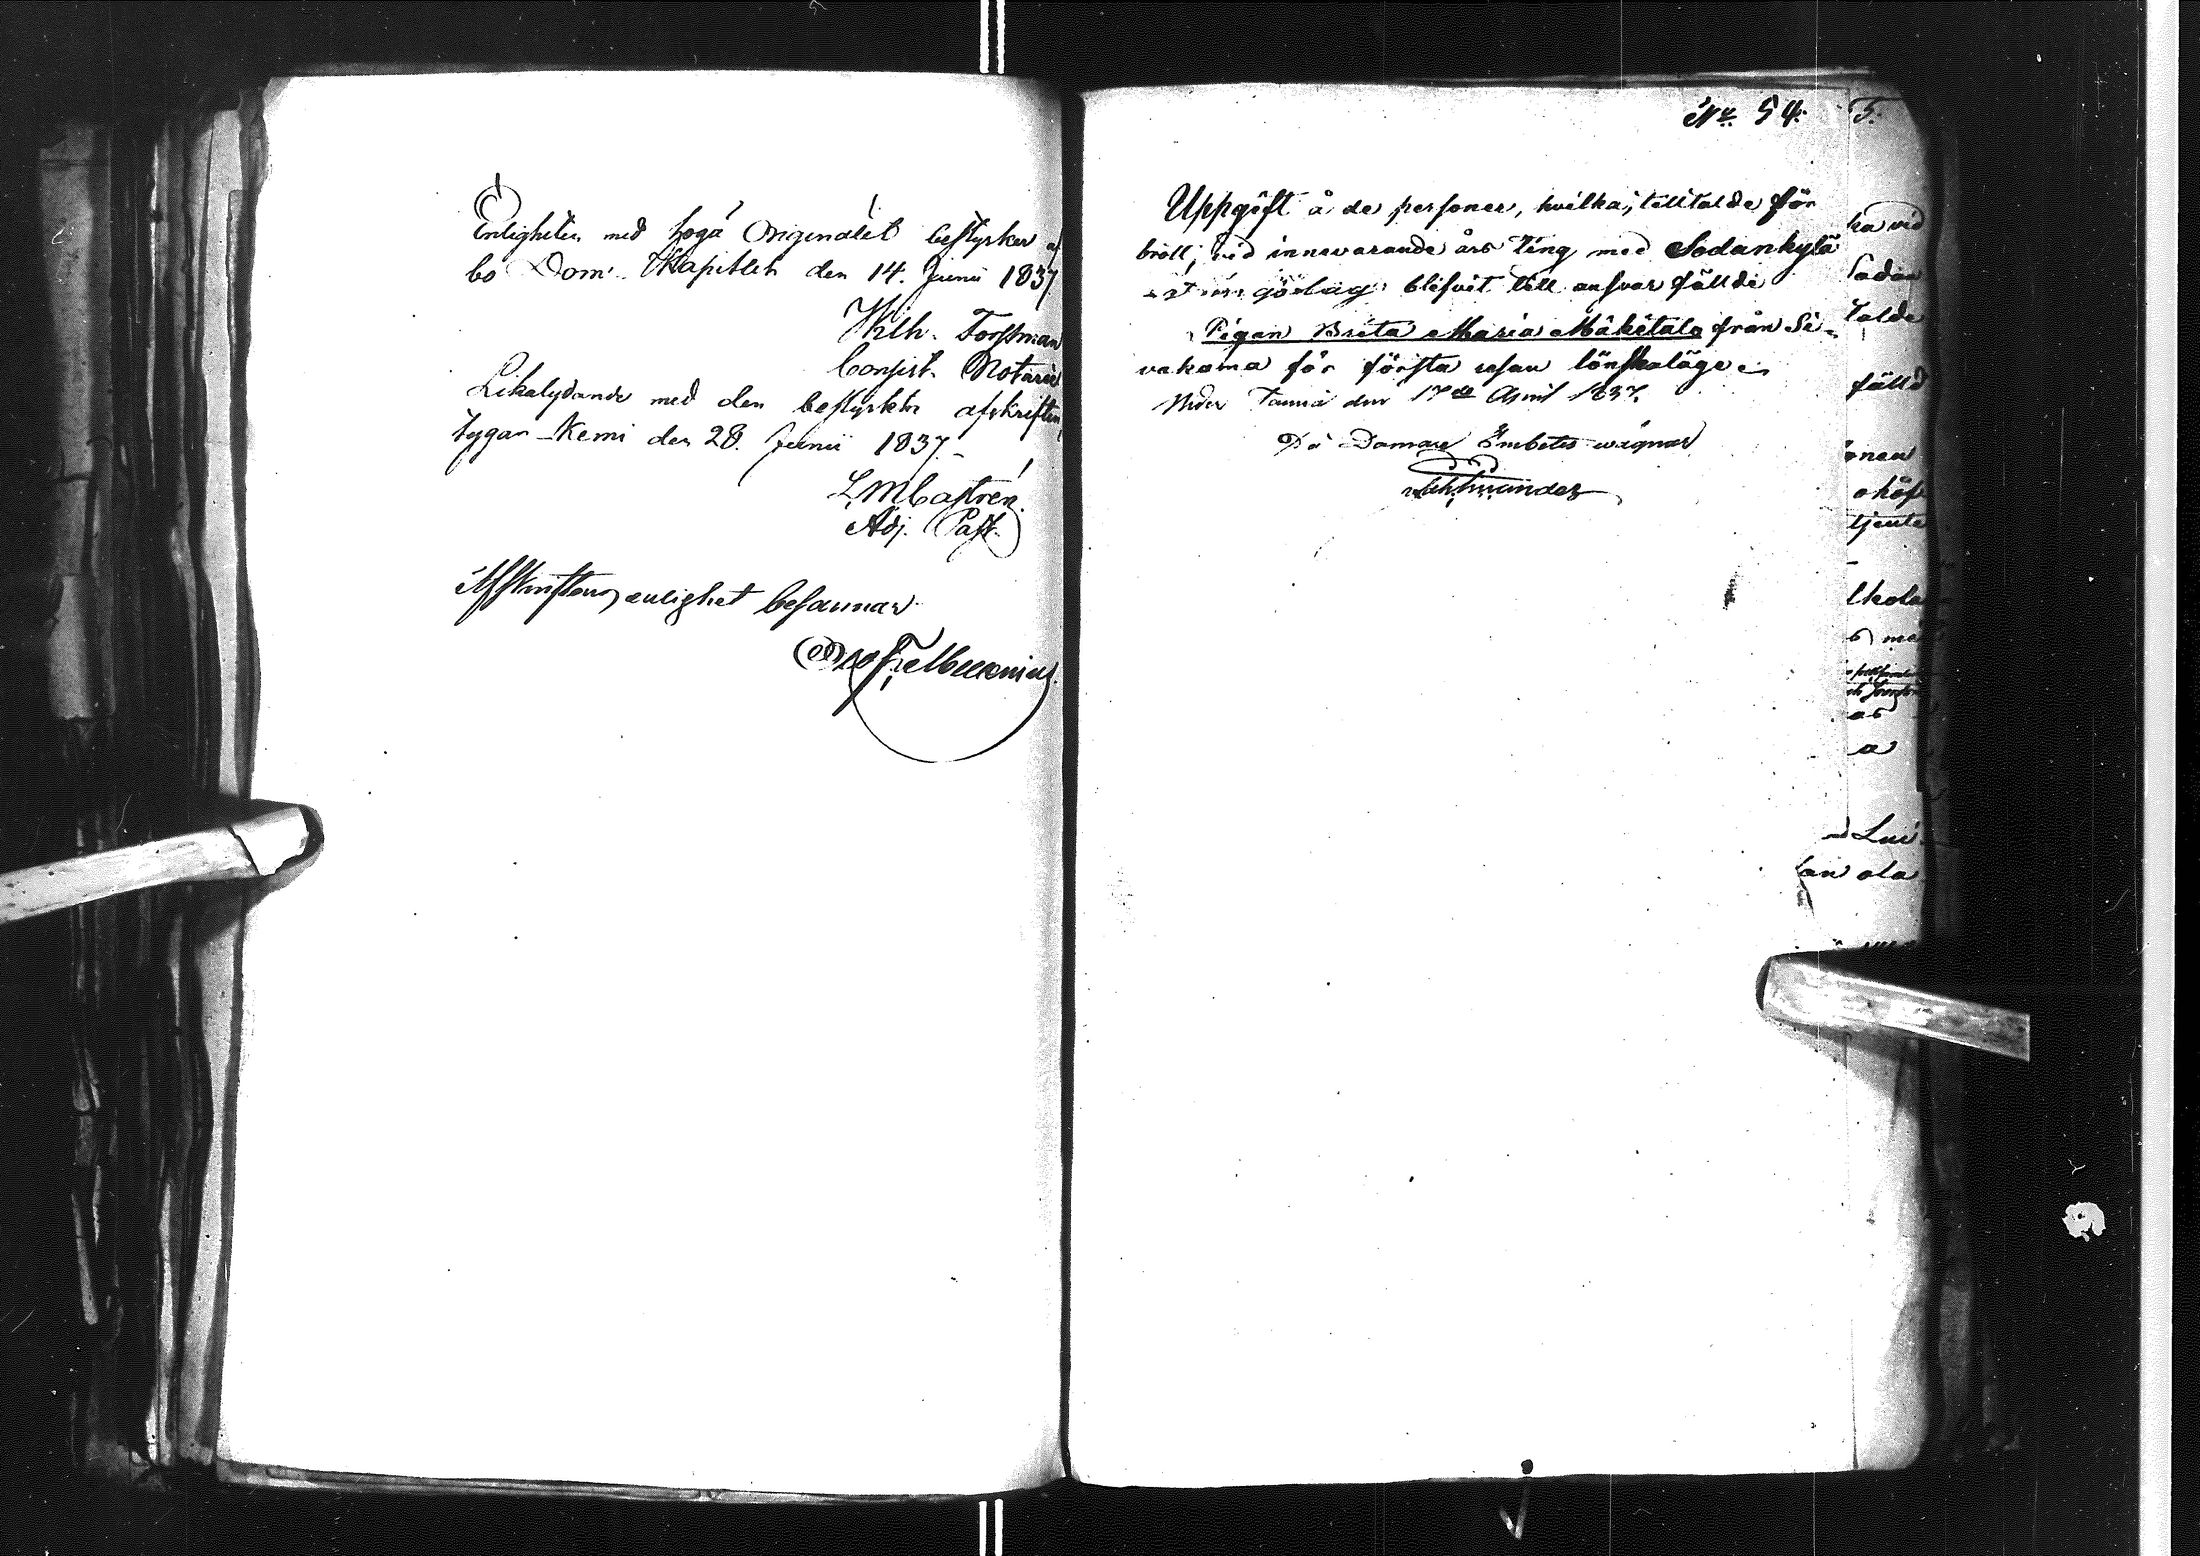 Enligheten med höga Originalet bestyrker
bo Dom Kapitlet den 14. Junii 1837
Wilh. Forssman
Consist. Notarie
Likalydande med den bestyrkta afskriften,
tygar Kemi den 28. Junii 1837.
L M Castrén.
Adj. Past.
Afskriftens enlighet besannar
No 54.
Uppgift å de personer, hvilka, tilltalde för
brott, vid innevarande års Ting med Sodankylä
blifvit till ansvar fällde
Pigan Brita Maria Mäkitalo från Si-
vakama för första resan lönskaläge.
Neder Tornio den 17de April 1837.
På Domare Embetes wägnar
5.
ka vid
Sodan
talde
fälld
tjente
Lui
ola